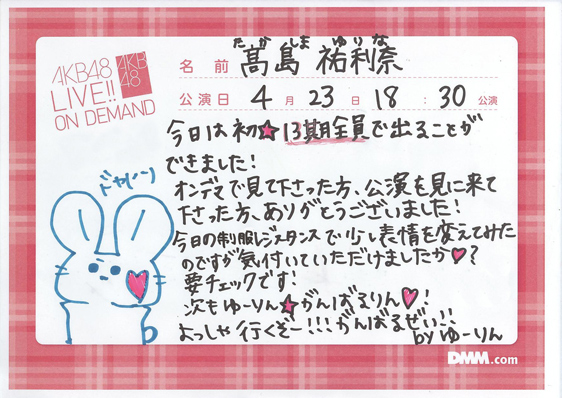 AKB48
LIVE!!
ON DEMAND
AKB
48
たかしま ゆりな
名前 髙島 祐利奈
公演日 4月23日 18:30公演
今日は初★13期全員で出ることが
できました!
オンデマで見て下さった方、公演を見に来て
下さった方、ありがとうございました!
今日の制服レジスタンスで少し表情を変えてみた
のですが気付いていただけましたか♥?
要チェックです!
次もゆーりん★がんばるりん♥!
よっしゃ行くぞー!!!がんばるぜい!!
by ゆーりん
DMM.com